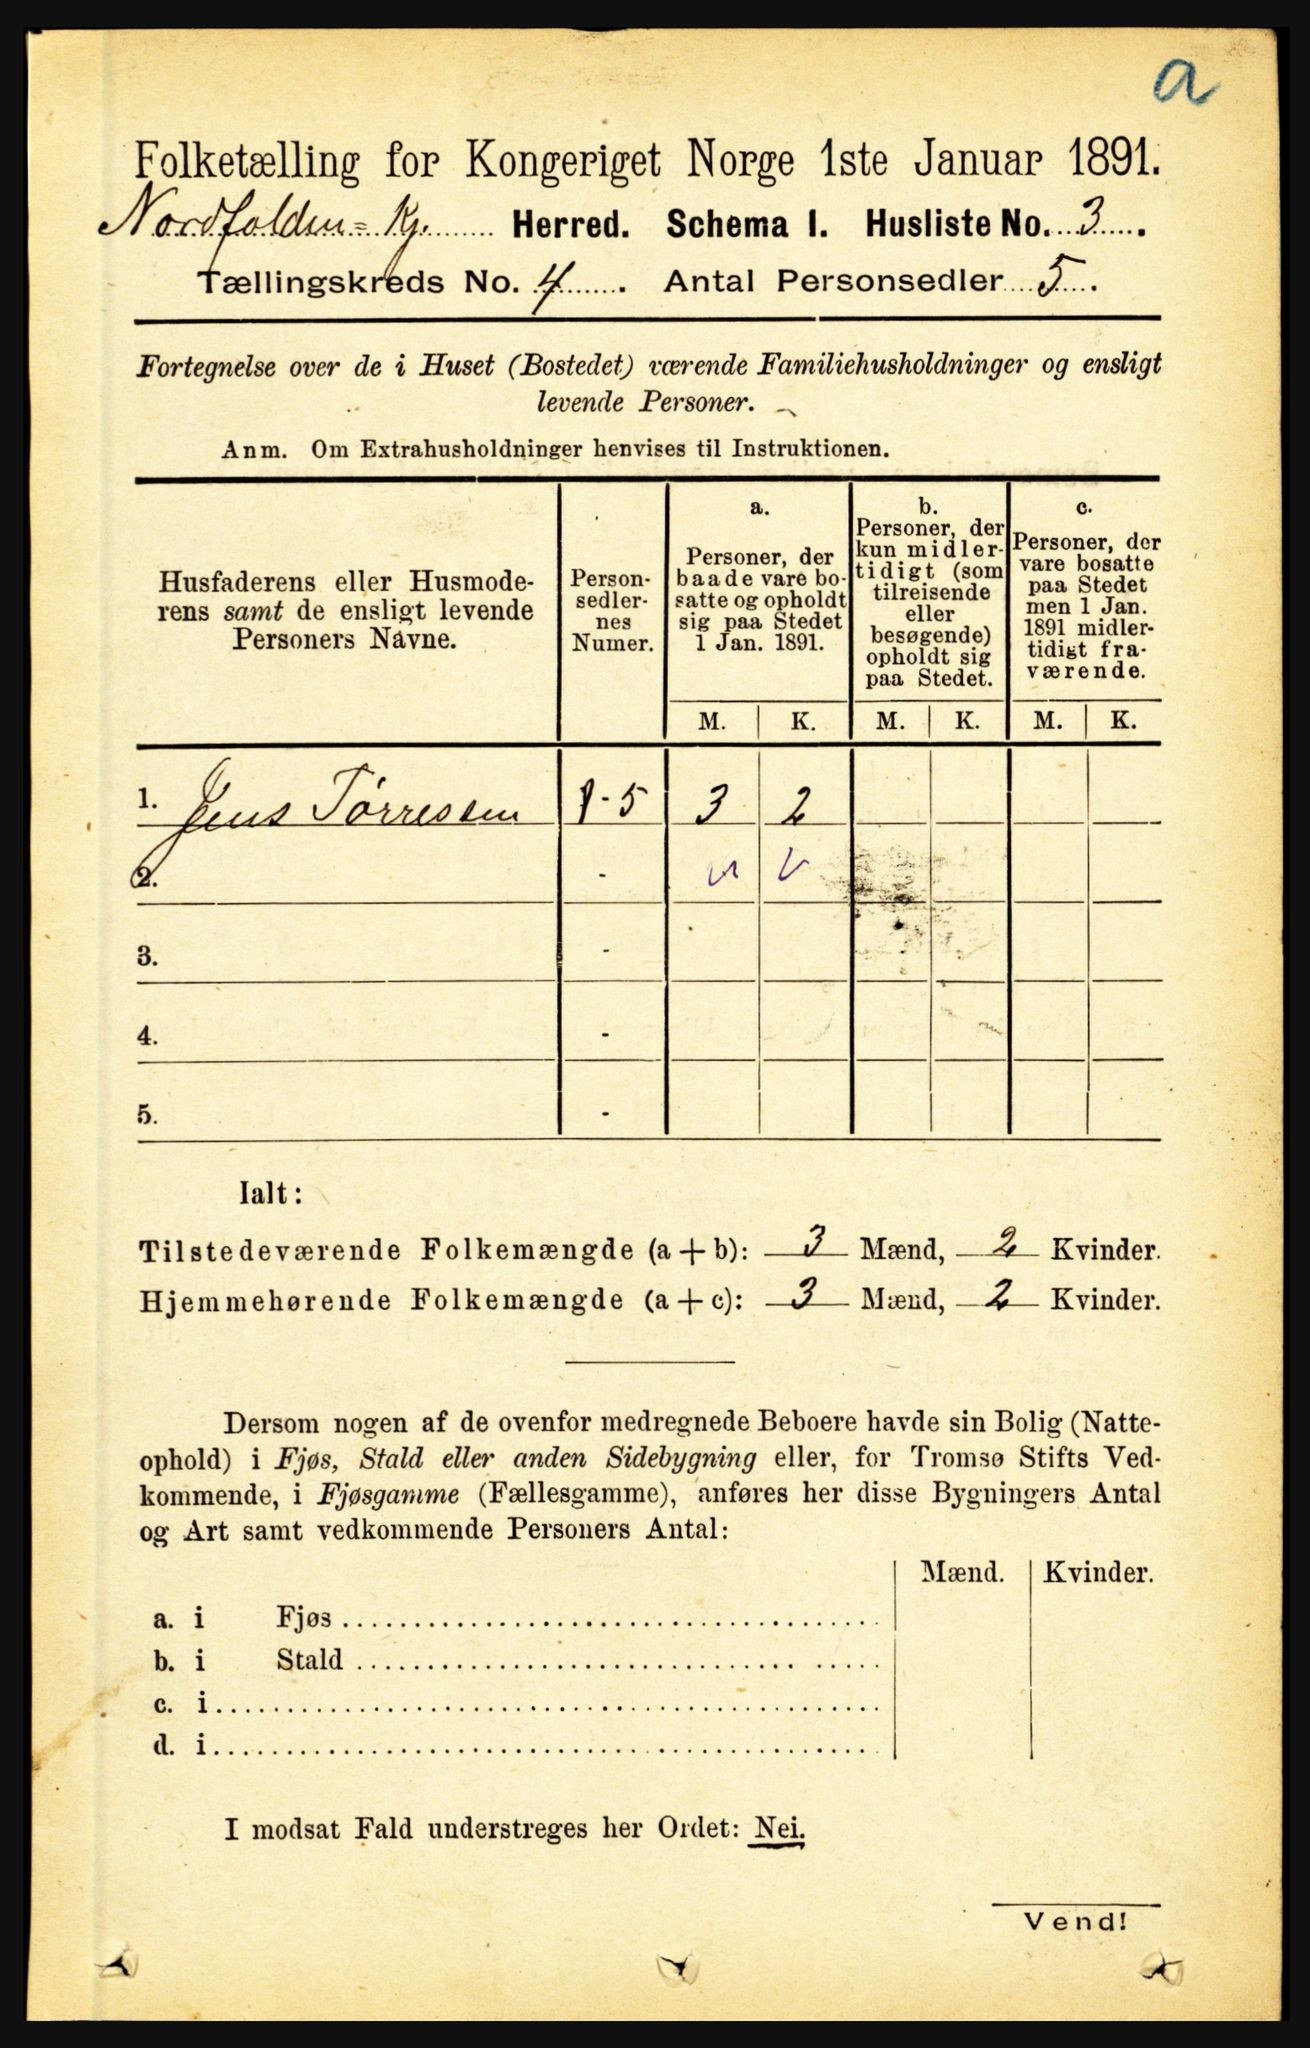 a
Folketælling for Kongeriget Norge 1ste Januar 1891.
Nordfolden-Kj. Herred. Schema I. Husliste No. 3.
Tællingskreds No. 4. Antal Personsedler 5.
Fortegnelse over de i Huset (Bostedet) værende Familiehusholdninger og ensligt
levende Personer.
Anm. Om Extrahusholdninger henvises til Instruktionen.
Husfaderens eller Husmode-
rens samt de ensligt levende
Personers Navne.
Person-
sedler-
nes
Numer.
a.
Personer, der
baade vare bo-
satte og opholdt
sig paa Stedet
1 Jan. 1891.
b.
Personer, der
kun midler-
tidigt (som
tilreisende
eller
besøgende)
opholdt sig
paa Stedet.
c.
Personer, der
vare bosatte
paa Stedet
men 1 Jan.
1891 midler-
tidigt fra-
værende.
M. K. M. K. M. K.
1. Jens Tørressen 1-5 3 2
2. -
3. -
4. -
5. -
Ialt:
Tilstedeværende Folkemængde (a + b): 3 Mænd, 2 Kvinder.
Hjemmehørende Folkemængde (a + c): 3 Mænd, 2 Kvinder.
Dersom nogen af de ovenfor medregnede Beboere havde sin Bolig (Natte-
ophold) i Fjøs, Stald eller anden Sidebygning eller, for Tromsø Stifts Ved-
kommende, i Fjøsgamme (Fællesgamme), anføres her disse Bygningers Antal
og Art samt vedkommende Personers Antal:
Mænd. Kvinder.
a. i Fjøs
b. i Stald
c. i
d. i
I modsat Fald understreges her Ordet: Nei.
Vend!